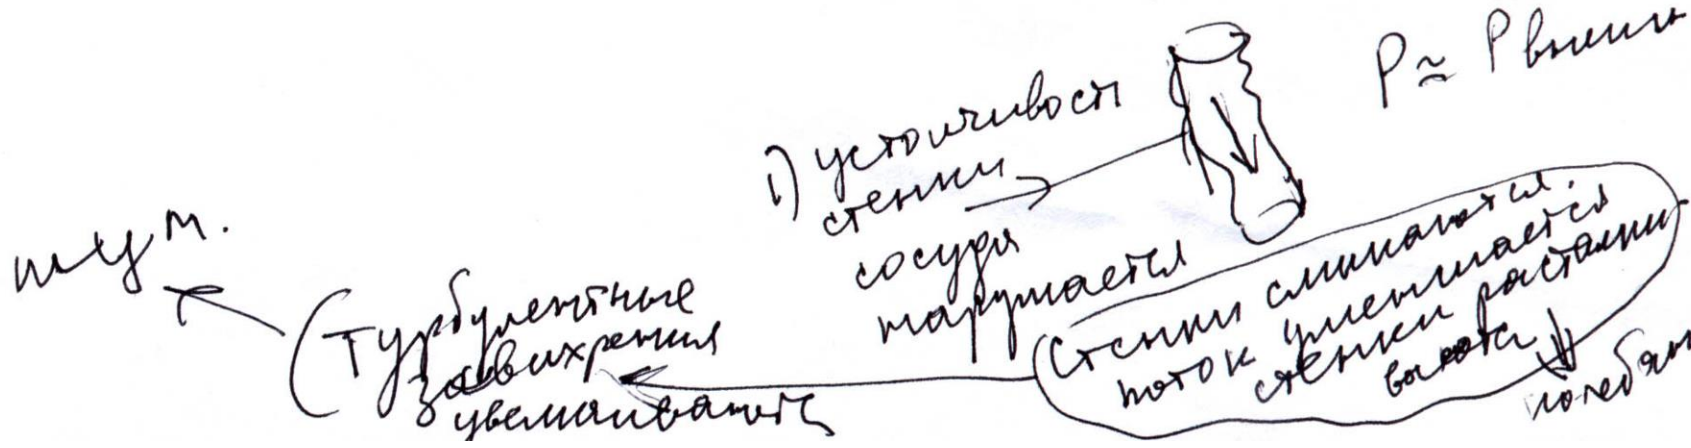 P ≈ Pвнешн
1) устойчивость
стенки
сосуда
нарушается
стенки смыкаются.
поток уменьшается
стенки расталки-
ваются
колебан
(Турбулентные
завихрения
увеличиваются
шум.